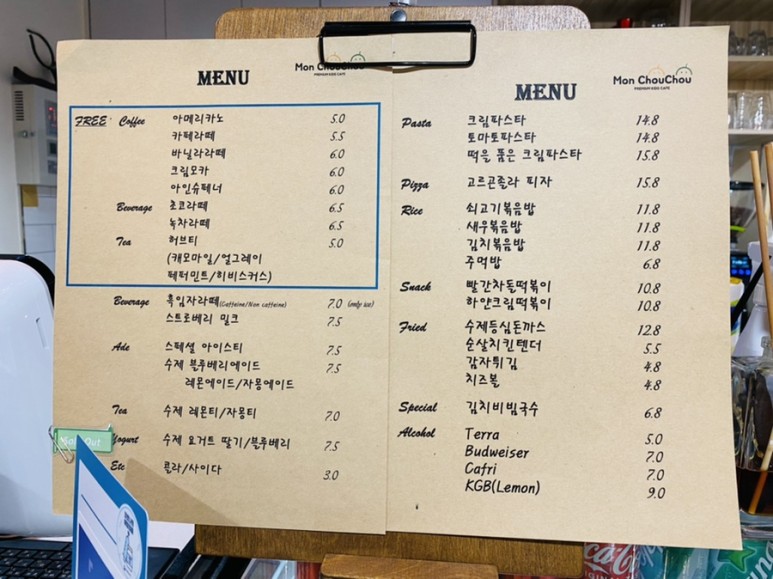 MENU
Mon ChouChou
PREMIUM KIDS CAFE
FREE Coffee 아메리카노 5.0
카페라떼 5.5
바닐라라떼 6.0
크림모카 6.0
아인슈테너 6.0
Beverage 초코라떼 6.5
녹차라떼 6.5
Tea 허브티 5.0
(캐모마일/얼그레이
페퍼민트/히비스커스)
Beverage 흑임자라떼(Caffeine/Non caffeine) 7.0 (only ice)
스트로베리 밀크 7.5
Ade 스페셜 아이스티 7.5
수제 블루베리에이드 7.5
레몬에이드/자몽에이드
Tea 수제 레몬티/자몽티 7.0
Sold Out
Yogurt 수제 요거트 딸기/블루베리 7.5
Etc 콜라/사이다 3.0
MENU
Mon ChouChou
PREMIUM KIDS CAFE
Pasta 크림파스타 14.8
토마토파스타 14.8
떡을 품은 크림파스타 15.8
Pizza 고르곤졸라 피자 15.8
Rice 쇠고기볶음밥 11.8
새우볶음밥 11.8
김치볶음밥 11.8
주먹밥 6.8
Snack 빨간차돌떡볶이 10.8
하얀크림떡볶이 10.8
Fried 수제등심돈까스 12.8
순살치킨텐더 5.5
감자튀김 4.8
치즈볼 4.8
Special 김치비빔국수 6.8
Alcohol Terra 5.0
Budweiser 7.0
Cafri 7.0
KGB(Lemon) 9.0